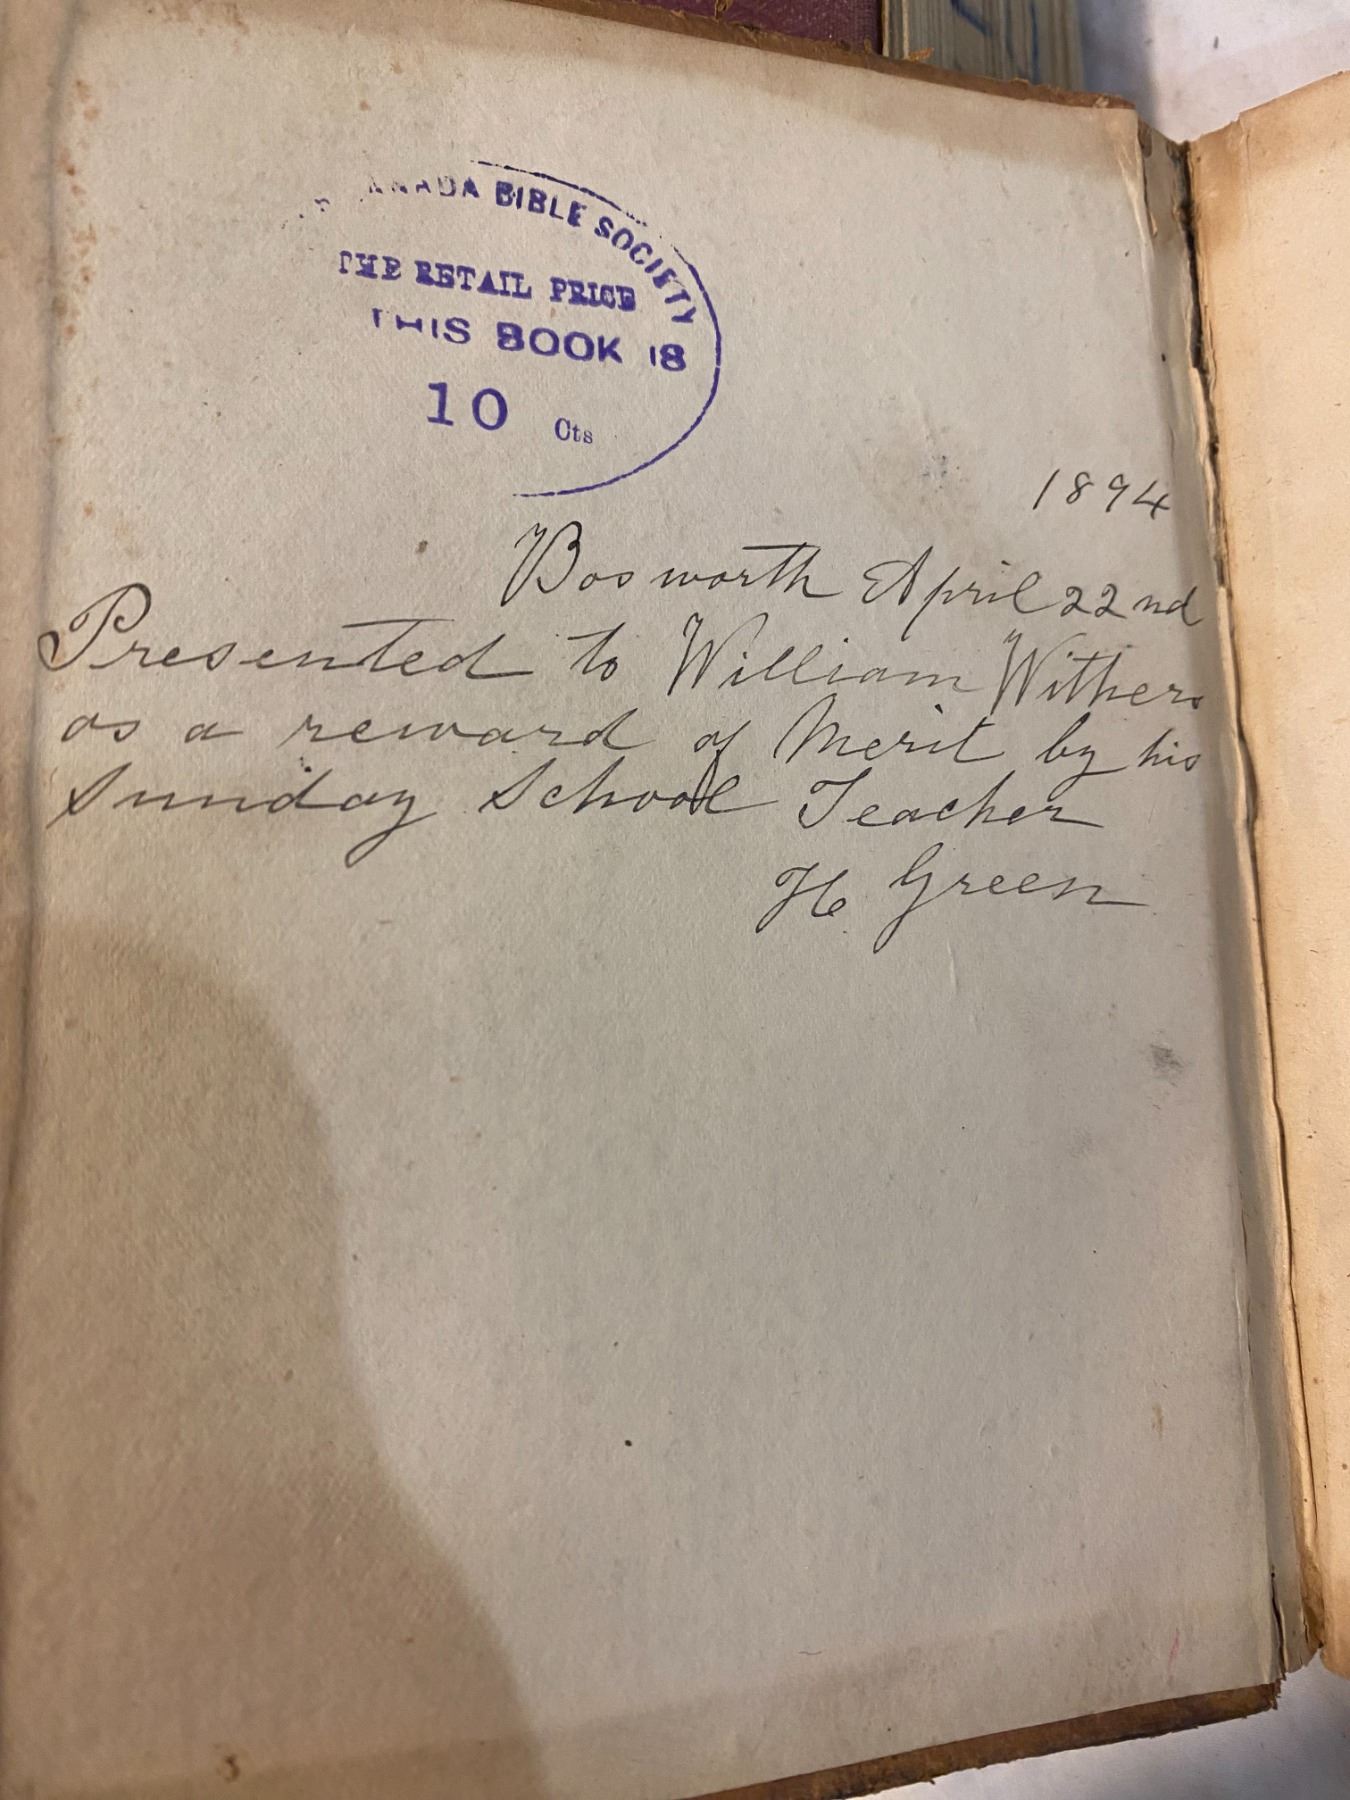 BIBLE SOCIETY
THE RETAIL PRICE
THIS BOOK IS
10 Cts
1894
Bosworth April 22nd
Presented to William Withers
as a reward of Merit by his
Sunday School Teacher
H Green